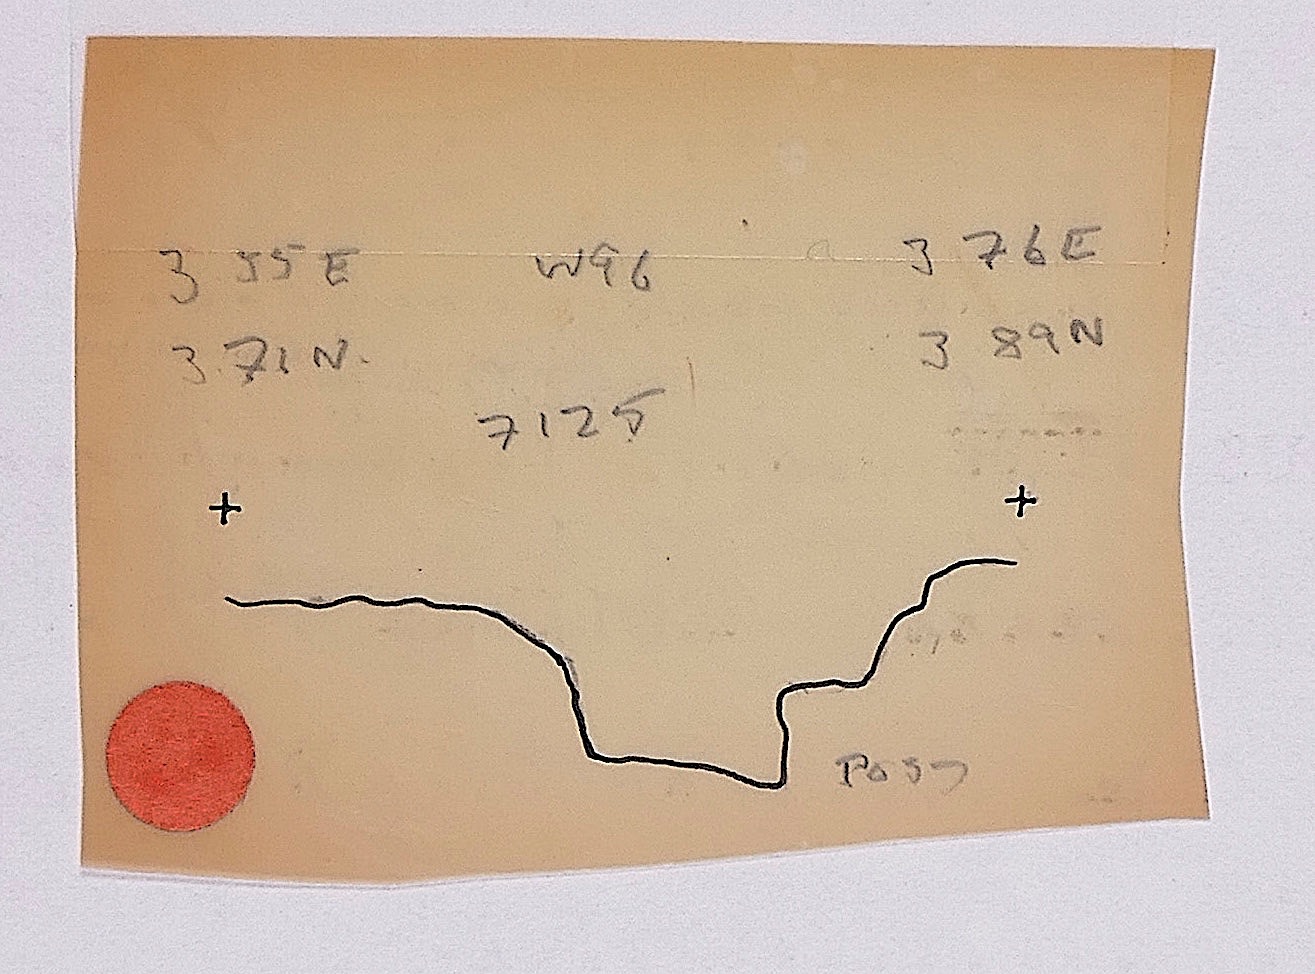 3 55 E W96 3 76 E
3.71 N. 3 89 N
7125
+ +